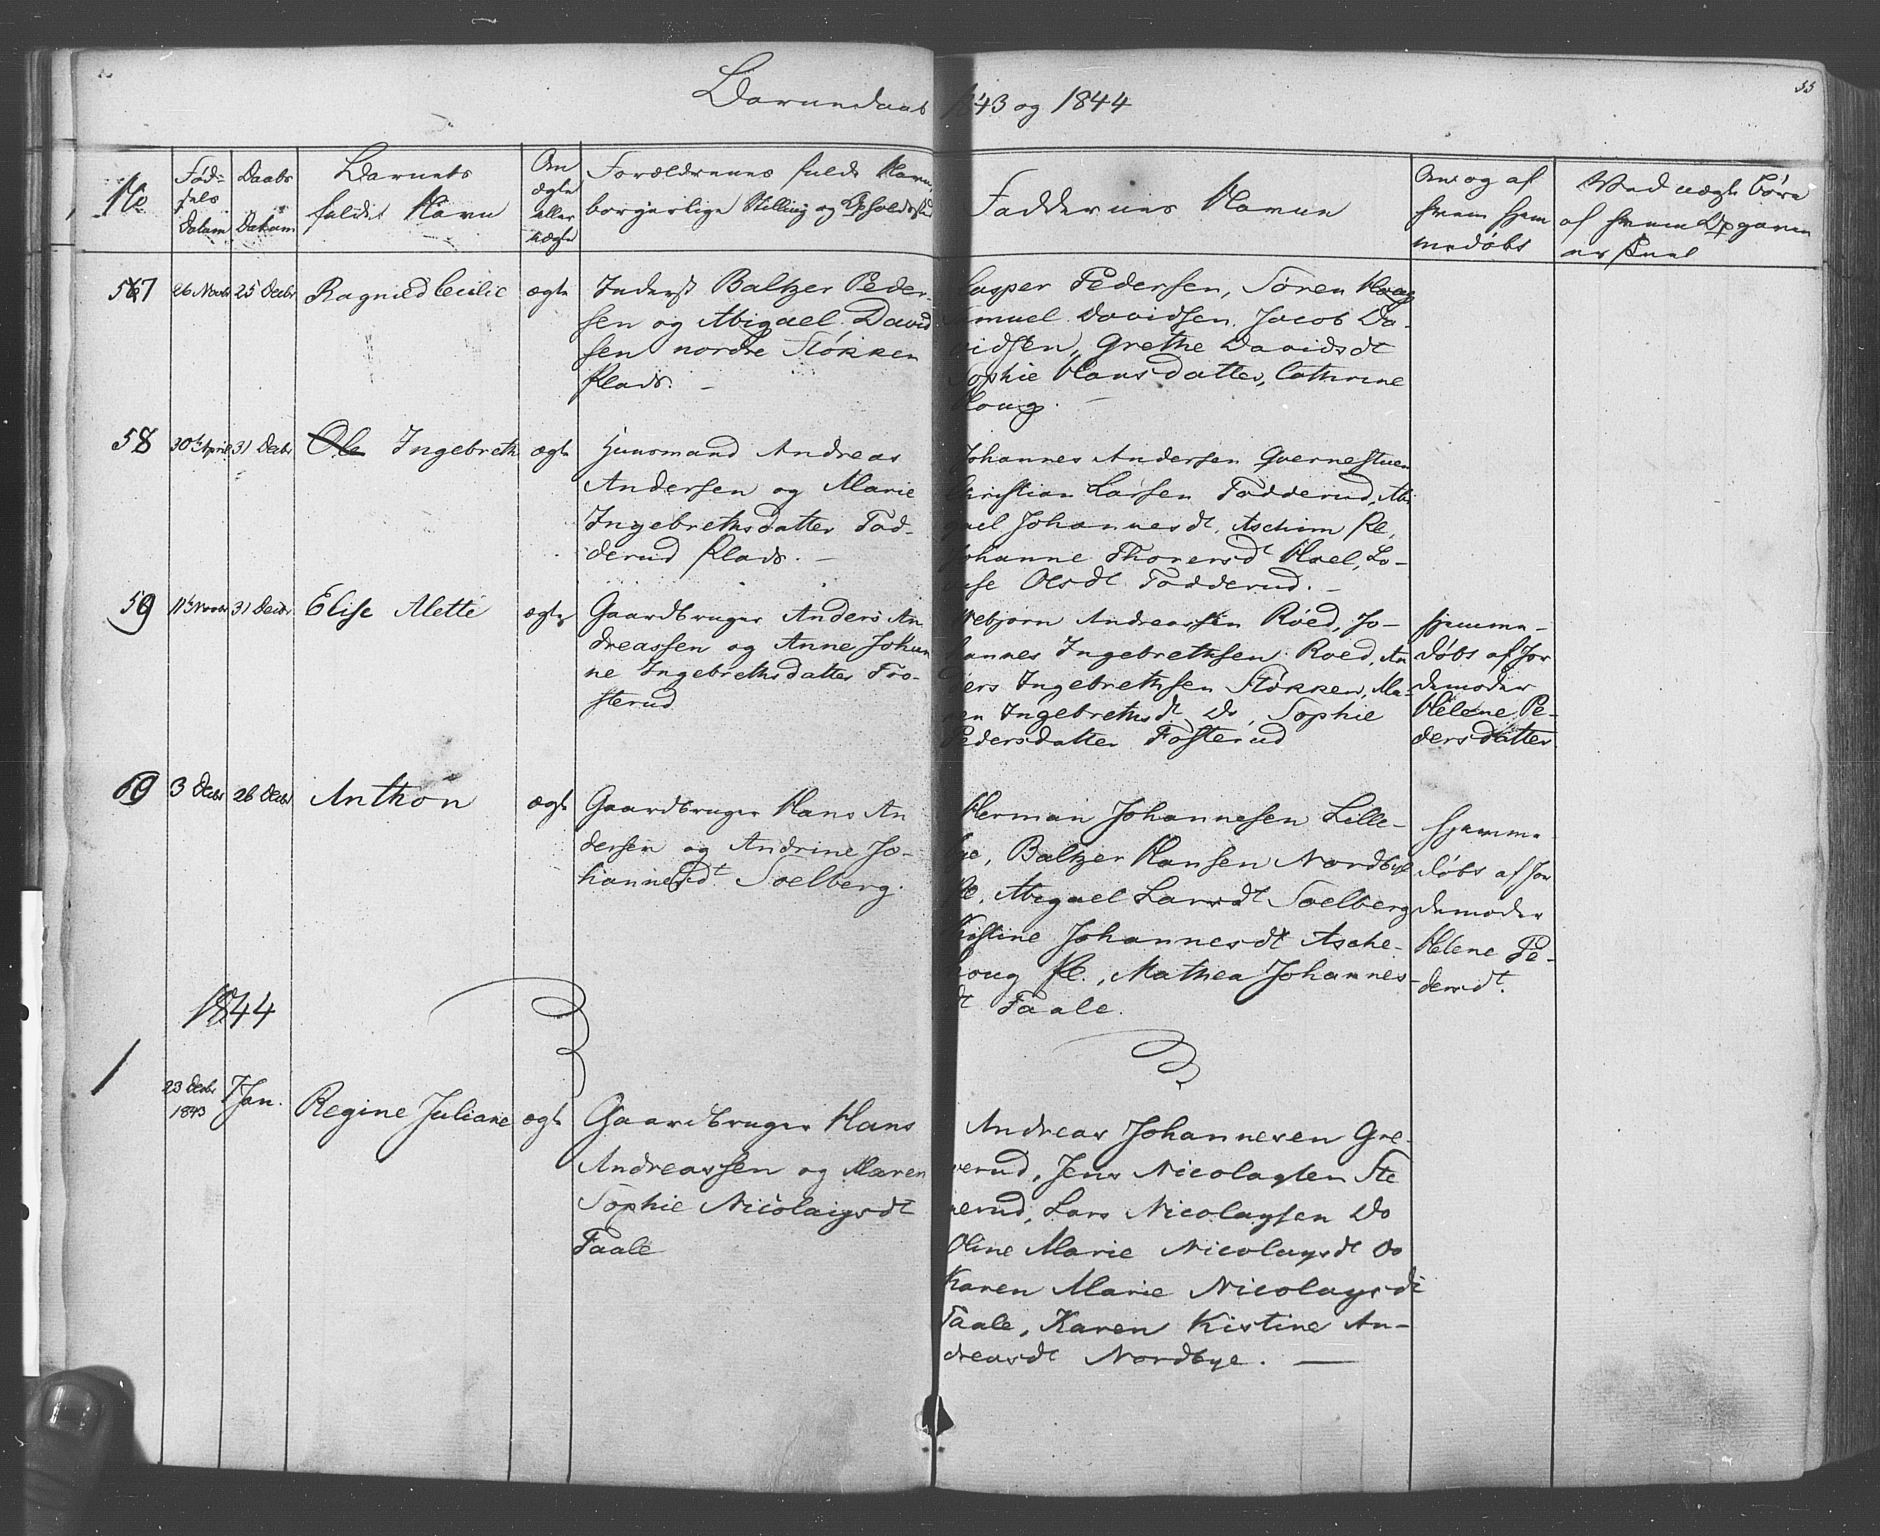 55
Barnedaab 1843 og 1844
No
Fød-
sels
Datum
Daabs
Datum
Barnets
fulde Navn
Om
ægte
eller
uægte
Forældrenes fulde Navn,
borgerlige Stilling og Opholdssted
Faddernes Navne
Om og af
hvem hjem
medøbt
Ved uægte Børn
af hvem Opgaven
er skeet
57 26 Novbr 25 Decbr Ragnild Cecilie ægte
Inderst Baltzer Peder-
sen og Abigael David
sen nordre Støkken
Plads. –
Casper Pedersen, Søren Houg
Samuel Davidsen, Jacob Da-
vidsen, Grethe Davidsdt
Sophie Hansdatter, Cathrine
Houg. –
58 30te April 31 Decbr Ole Ingebreth ægte
Huusmand Andreas
Andersen og Marie
Ingebrethsdatter Tad-
derud Plads. –
Johannes Andersen Qvernestuen
Christian Larsen Tadderud, Abi
gael Johannesdt, Aschim Pl,
Johanne Thorersdt Hoel, Lo-
vise Olsdt Tadderud. –
59 11te Novbr 31 Decbr Elise Alette ægte
Gaardbruger Anders An
dreassen og Anne Johan
ne Ingebrethsdatter Fro-
sterud
Andreassen Røed, Jo-
hannes Ingebrethsen Roed, An
ders Ingebrethsen Støkken, Ma-
ren Ingebrethsdt Do, Sophie
Pedersdatter Fosterud
hjemme-
døbt af Jor
demoder
Helene Pe-
dersdatter
60 3 Decbr 26 Decbr Anthon ægte
Gaardbruger Hans An
dersen og Andrine Jo-
hannesdt Soelberg.
Herman Johannesen Lille-
bye, Baltzer Hansen Nordbye
Pl, Abigael Larsdt Soelberg
Kistine Johannesdt Asche-
houg Pl., Mathea Johannes-
dt Faale.
hjemme-
døbt af Jor
demoder
Helene Pe-
dersdt.
1844
1 23 Decbr
1843
7 Jan. Regine Juliane ægte
Gaardbruger Hans
Andreassen og Maren
Sophie Nicolaysdt
Faale
Andreas Johannesen Gre-
verud, Jens Nicolaysen Ste
nerud, Lars Nicolaysen Do
Oline Marie Nicolaysdt Do
Karen Marie Nicolaysdt
Faale, Karen Kistine An-
dreasdt Nordbye. –